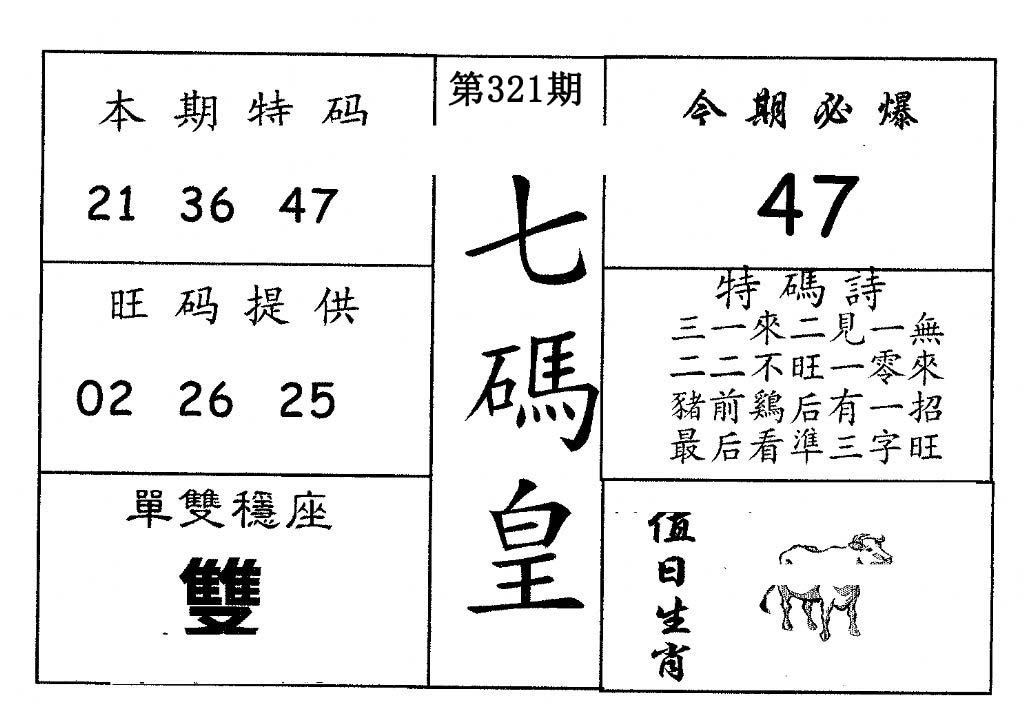 本期特码
21 36 47
旺码提供
02 26 25
單雙穩座
雙
第321期
七碼皇
今期必爆
47
特碼詩
三一來二見一無
二二不旺一零來
豬前鷄后有一招
最后看準三字旺
值日生肖